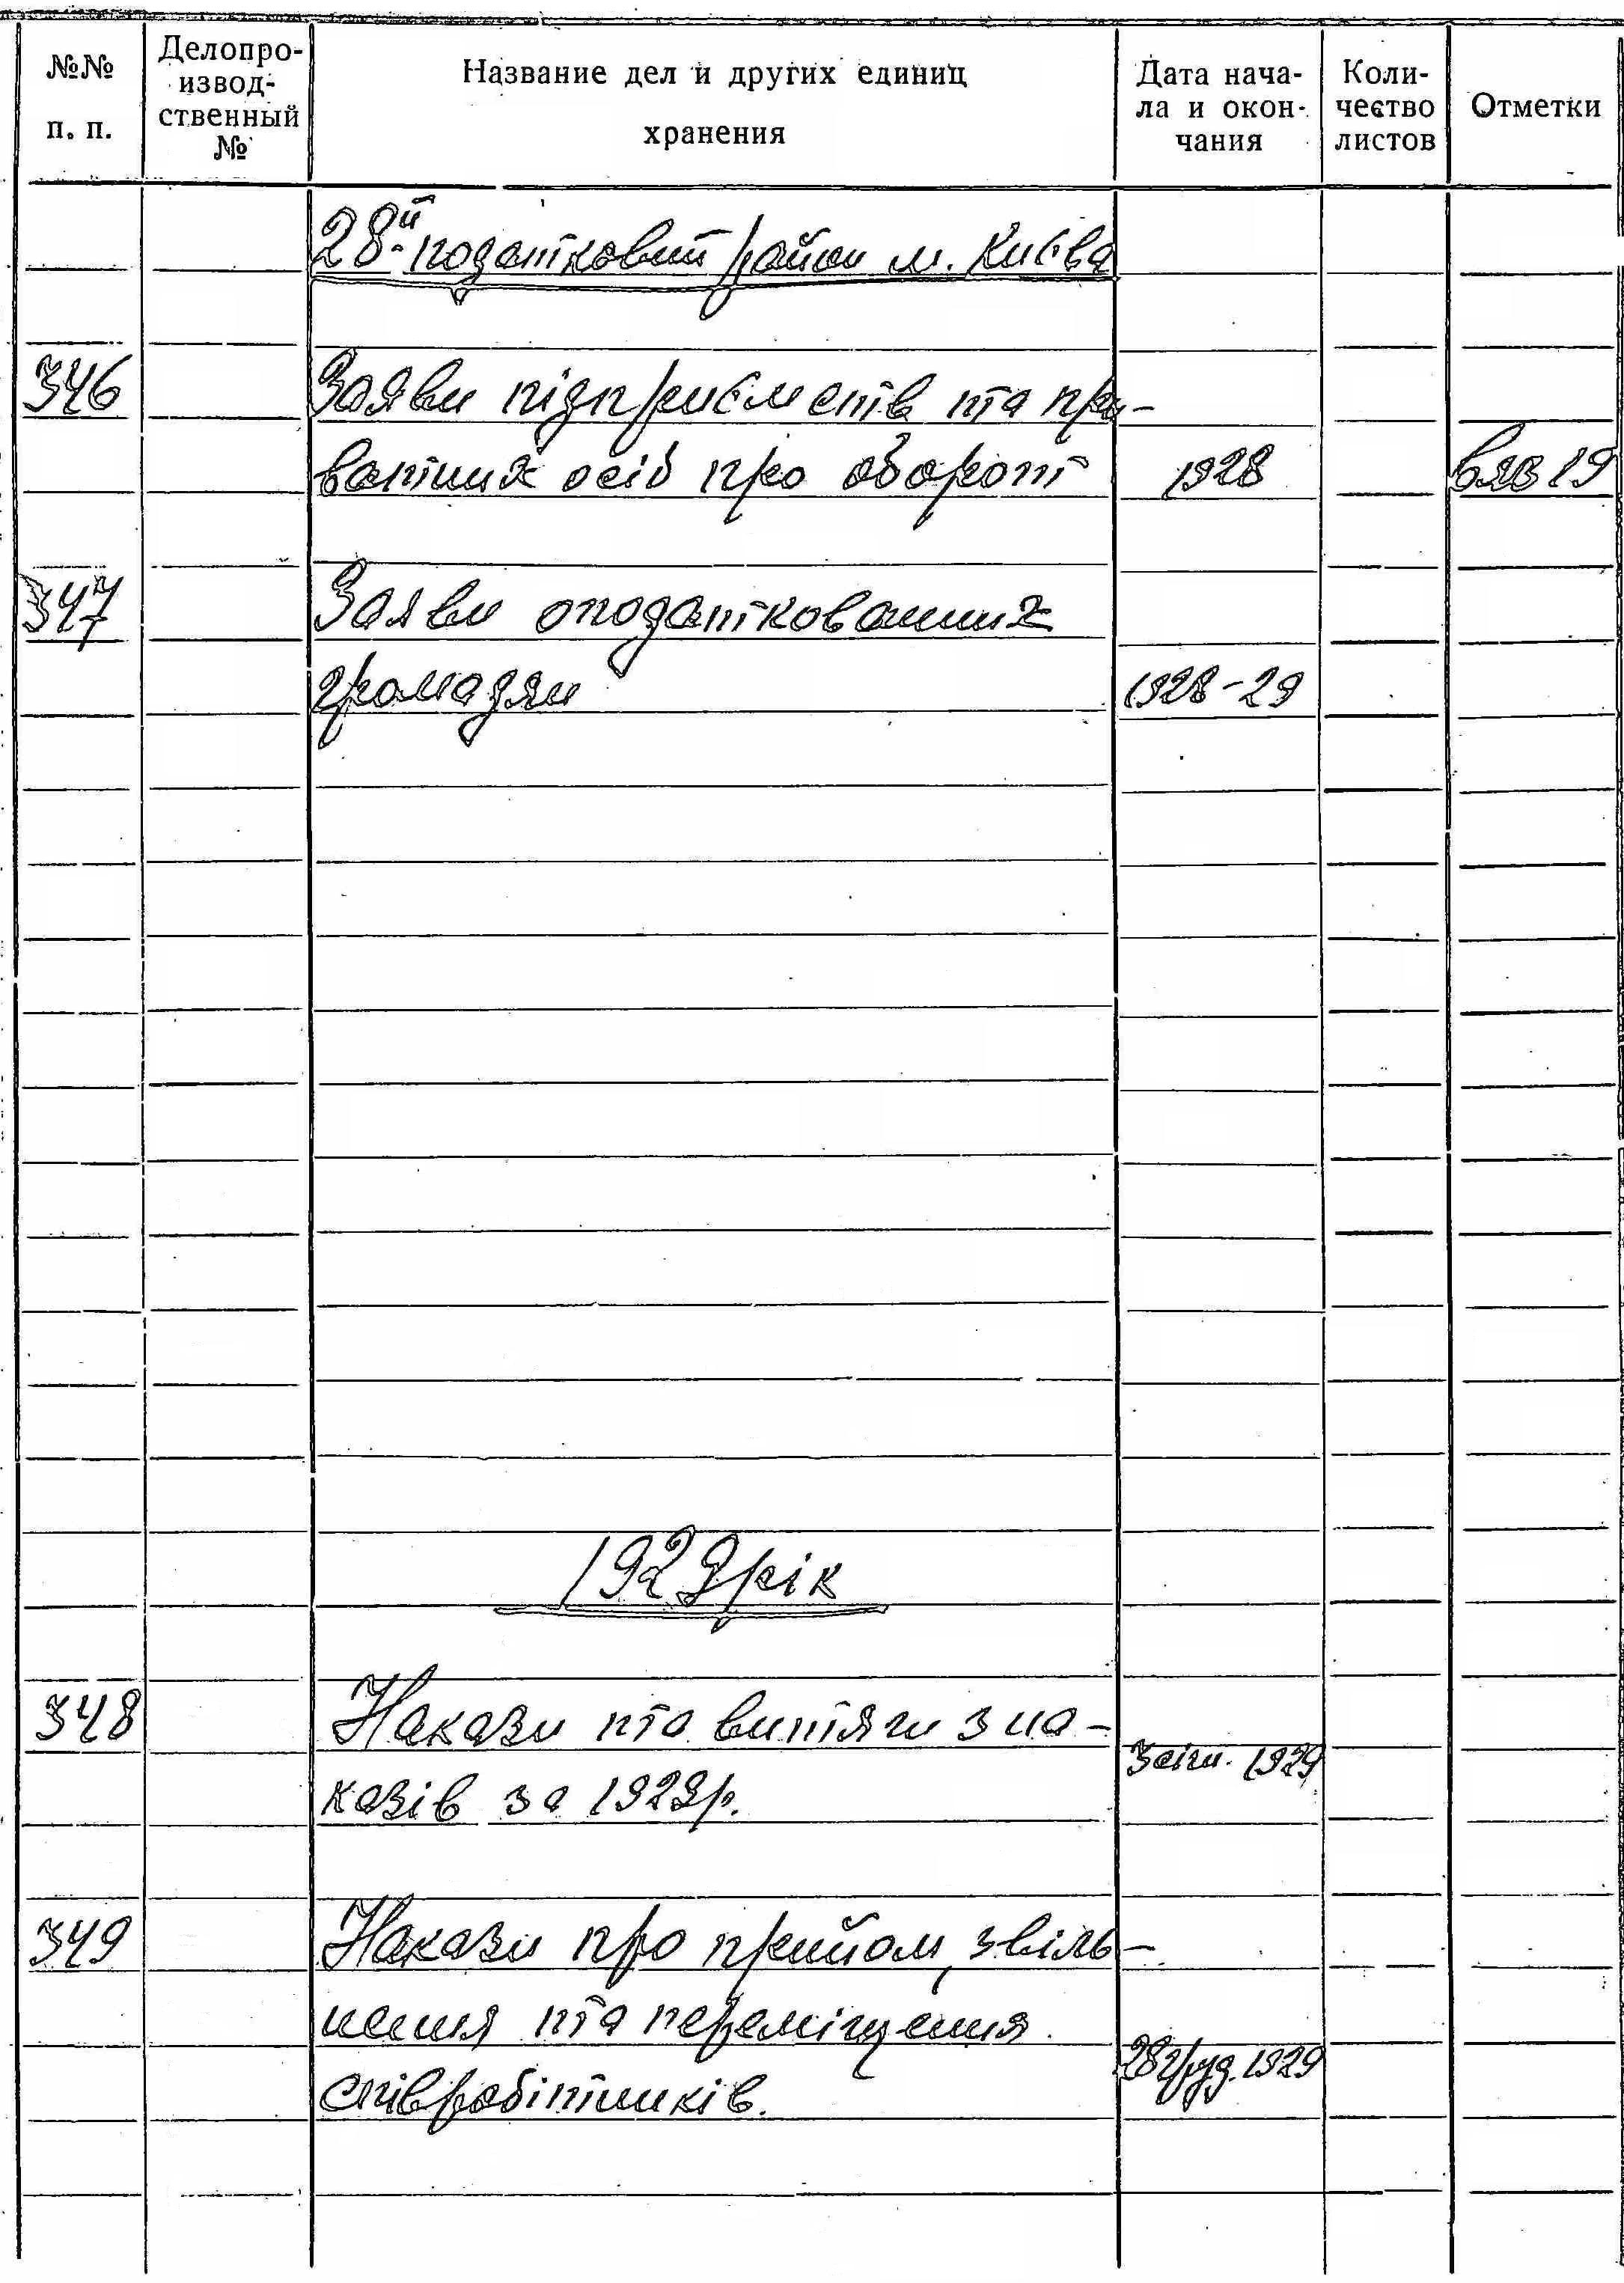 №№ п. п.
Делопро-
извод-
ственный
№
Название дел и других единиц
хранения
Дата нача-
ла и окон-
чания
Коли-
чество
листов
Отметки
28-й податковий район м. Києва
346 Заяви підприємств та при-
ватних осіб про оборот 1928 19
347 Заяви оподаткованних
громадян 1928-29
1929 рік
348 Накази та витяги з на-
3 січн. 1929
казів за 1929р.
349 Накази про прийом, звіль-
нення та переміщення
28 груд. 1929
співробітників.